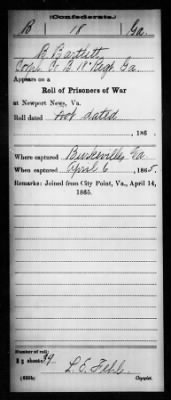 (Confederate.)
B 18 Ga.
R Bartlett
Corpl Co B 18 Regt Ga
Appears on a
Roll of Prisoners of War
at Newport News, Va.
Roll dated Not dated
, 186 .
Where captured Burkeville, Va
When captured April 6, 1865.
Remarks: Joined from City Point, Va., April 14,
1865.
Number of roll:
sheet 39
L. E. Fehl.
Copyist.